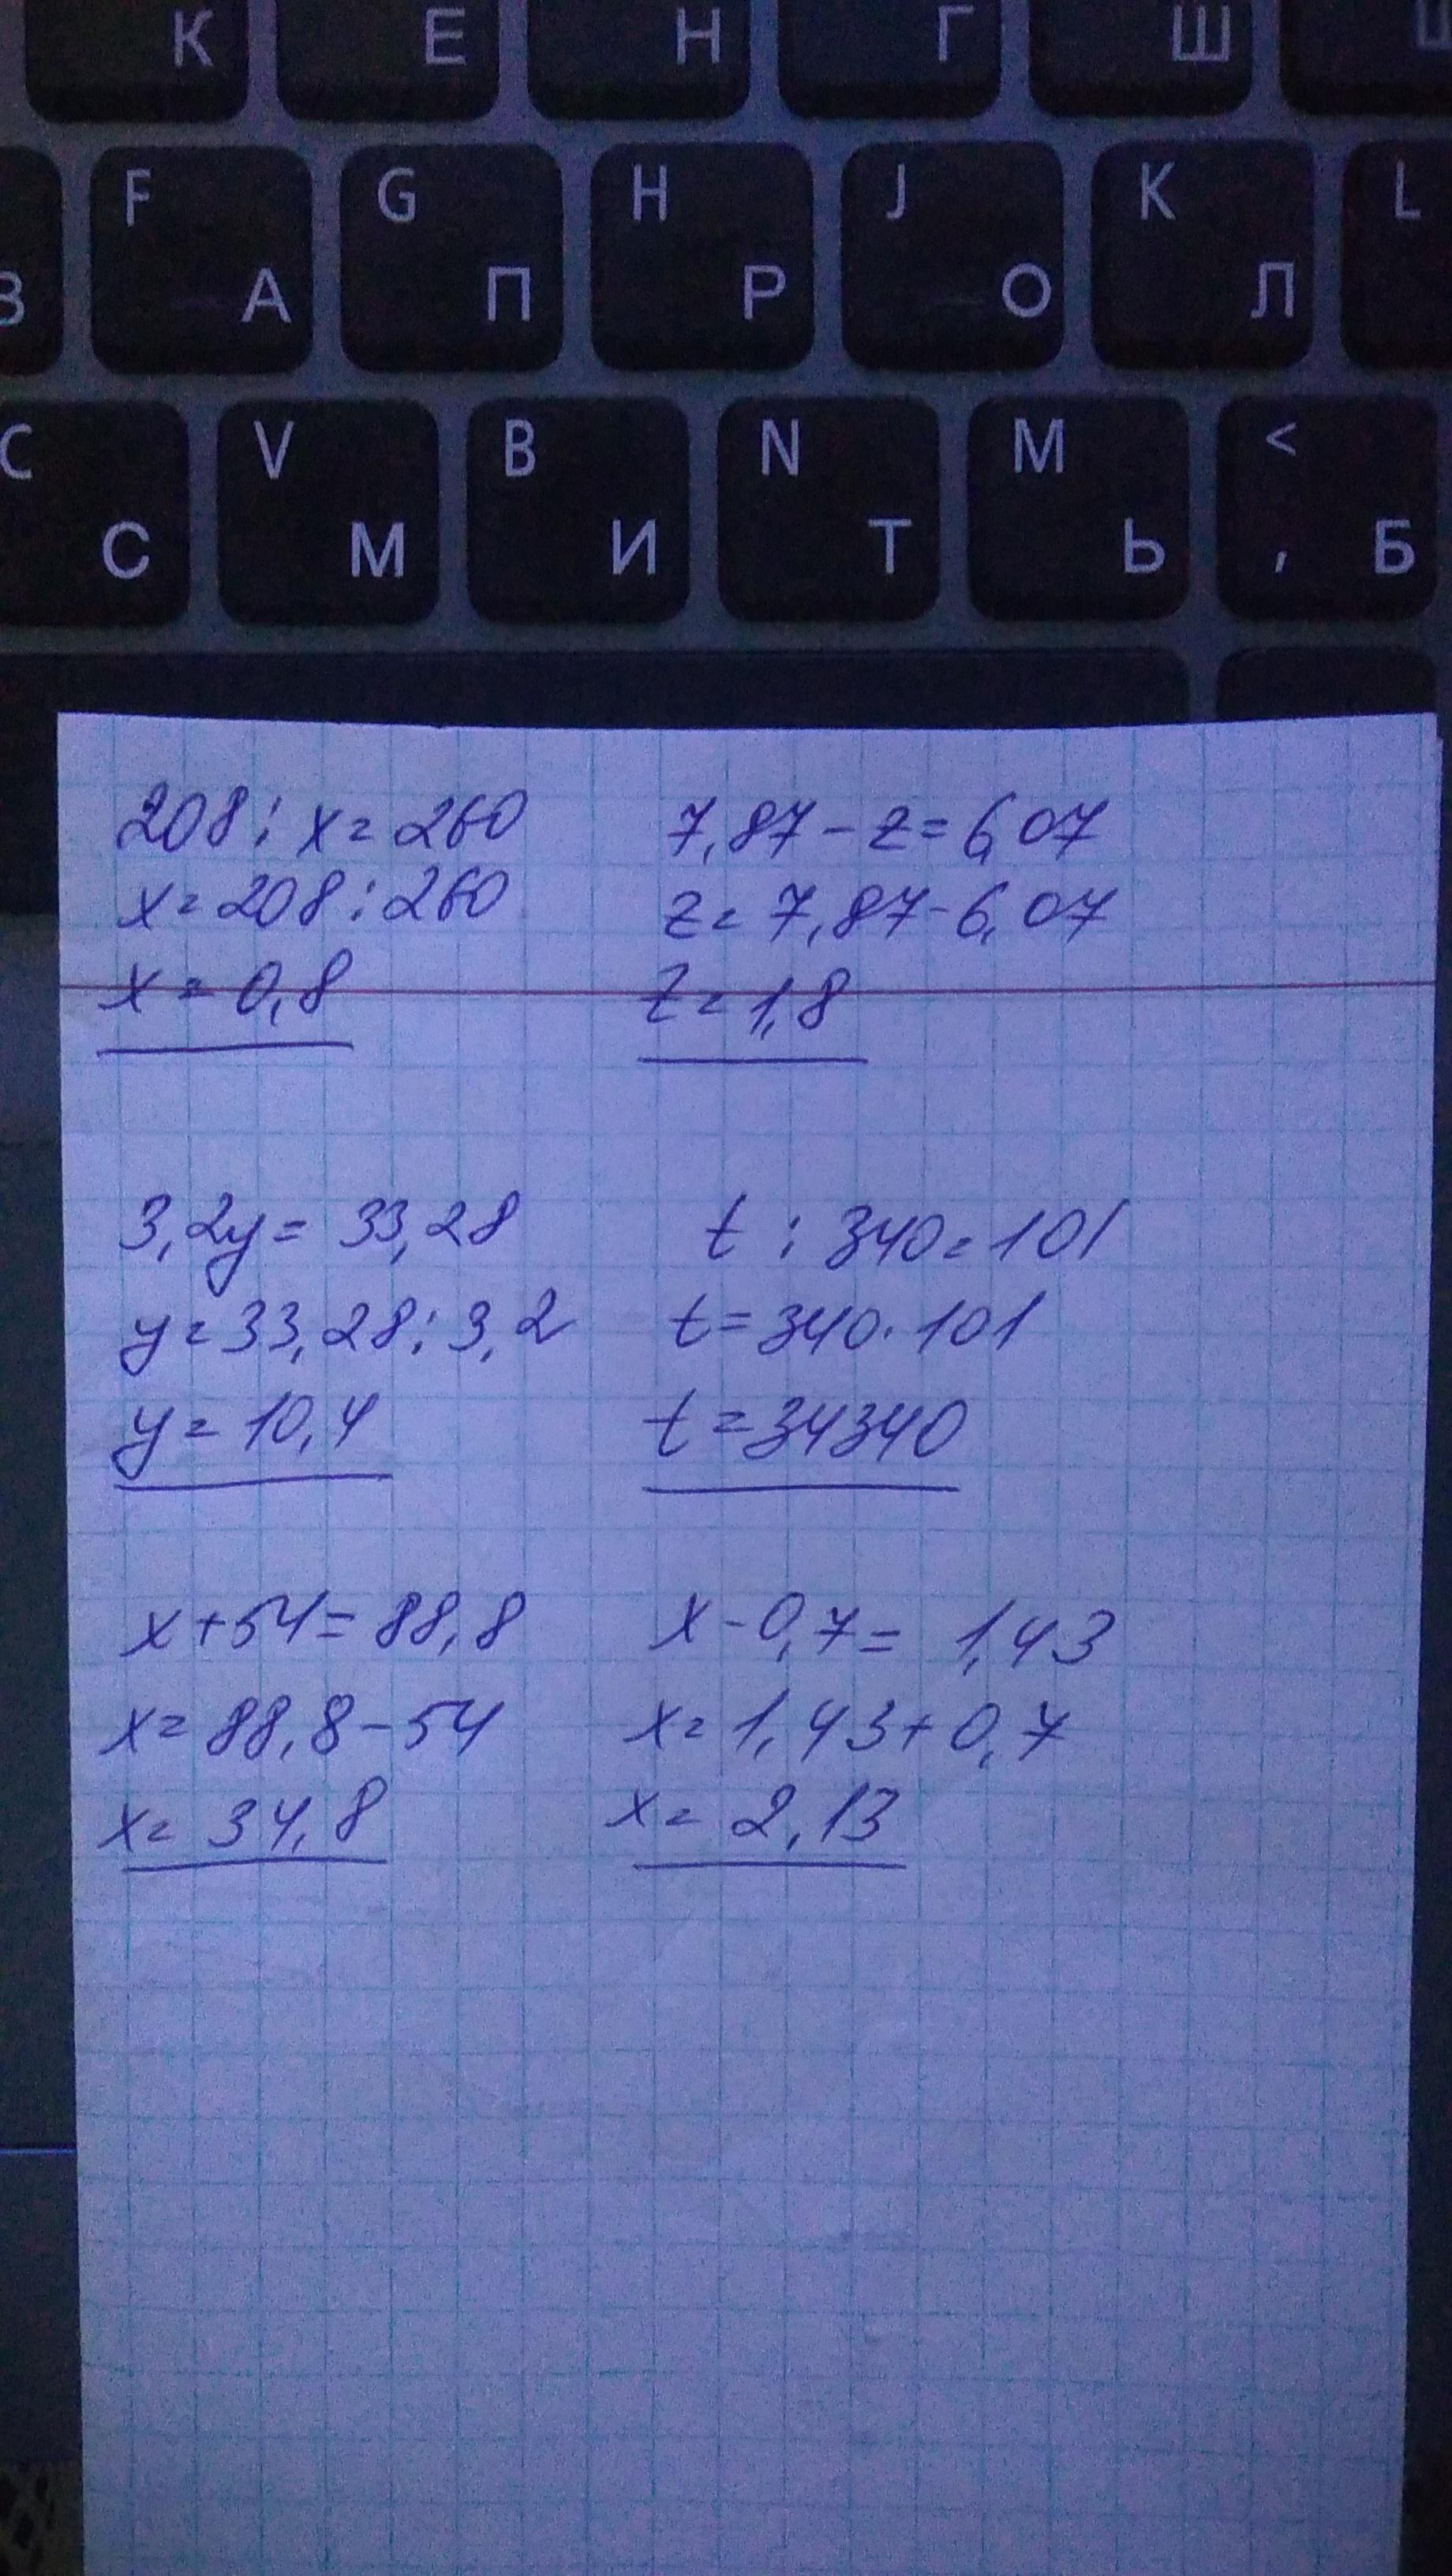 К Е Н Г Ш
F G H J K L
В А П Р О Л
C V B N M <
С М И Т Ь , Б
208 : x = 260
x = 208 : 260
x = 0,8
7,87 - z = 6,07
z = 7,87 - 6,07
z = 1,8
3,2y = 33,28
y = 33,28 : 3,2
y = 10,4
t : 340 = 101
t = 340 · 101
t = 34340
x + 54 = 88,8
x = 88,8 - 54
x = 34,8
x - 0,7 = 1,43
x = 1,43 + 0,7
x = 2,13